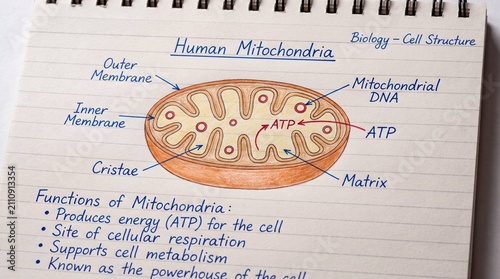 Biology – Cell Structure
Human Mitochondria
Outer
Membrane
Mitochondrial
DNA
Inner
Membrane
ATP
ATP
Cristae
Matrix
Functions of Mitochondria:
• Produces energy (ATP) for the cell
• Site of cellular respiration
• Supports cell metabolism
• Known as the powerhouse of the cell
Adobe Stock | #2110913354